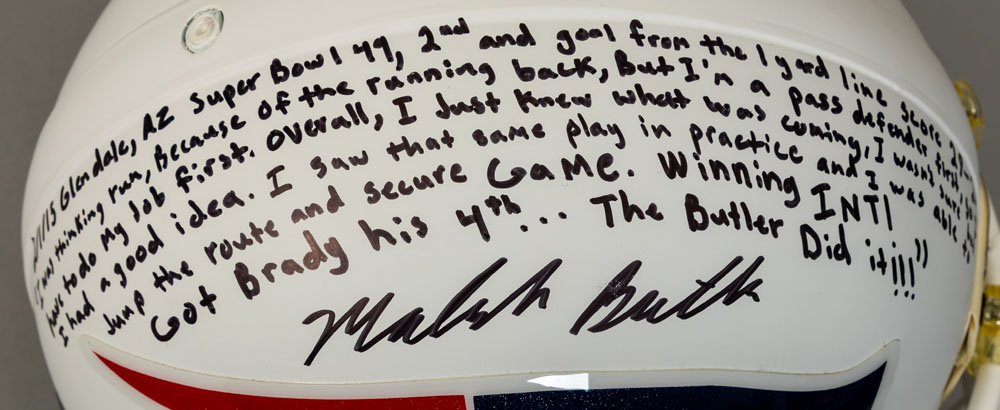 2/1/15 Glendale, AZ Super Bowl 49, 2nd and goal from the 1 yard line score 27-
"I was thinking run, Because of the running back, But I'm a pass defender first,
have to do my Job first. Overall, I Just knew what was coming, I wasn't sure,
I had a good idea. I saw that same play in practice and I was able to
Jump the route and secure GaMe. Winning INT!
Got Brady his 4th... The Butler Did it!!!"
Malcolm Butler